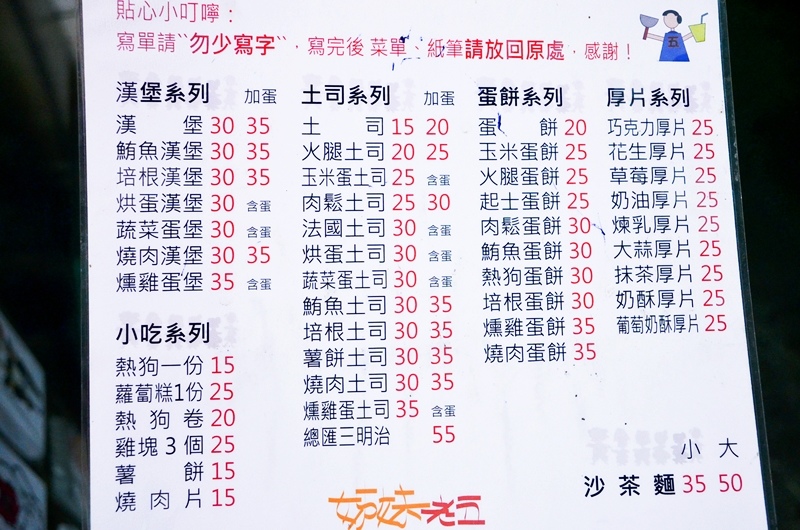 貼心小叮嚀：
寫單請“勿少寫字“，寫完後 菜單、紙筆請放回原處，感謝！
五
漢堡系列 加蛋
漢堡 30 35
鮪魚漢堡 30 35
培根漢堡 30 35
烘蛋漢堡 30 含蛋
蔬菜蛋堡 30 含蛋
燒肉漢堡 30 35
燻雞蛋堡 35 含蛋
小吃系列
熱狗一份 15
蘿蔔糕1份 25
熱狗卷 20
雞塊3個 25
薯餅 15
燒肉片 15
土司系列 加蛋
土司 15 20
火腿土司 20 25
玉米蛋土司 25 含蛋
肉鬆土司 25 30
法國土司 30 含蛋
烘蛋土司 30 含蛋
蔬菜蛋土司 30 含蛋
鮪魚土司 30 35
培根土司 30 35
薯餅土司 30 35
燒肉土司 30 35
燻雞蛋土司 35 含蛋
總匯三明治 55
蛋餅系列
蛋餅 20
玉米蛋餅 25
火腿蛋餅 25
起士蛋餅 25
肉鬆蛋餅 30
鮪魚蛋餅 30
熱狗蛋餅 30
培根蛋餅 30
燻雞蛋餅 35
燒肉蛋餅 35
厚片系列
巧克力厚片 25
花生厚片 25
草莓厚片 25
奶油厚片 25
煉乳厚片 25
大蒜厚片 25
抹茶厚片 25
奶酥厚片 25
葡萄奶酥厚片 25
小 大
沙茶麵 35 50
姊妹老五